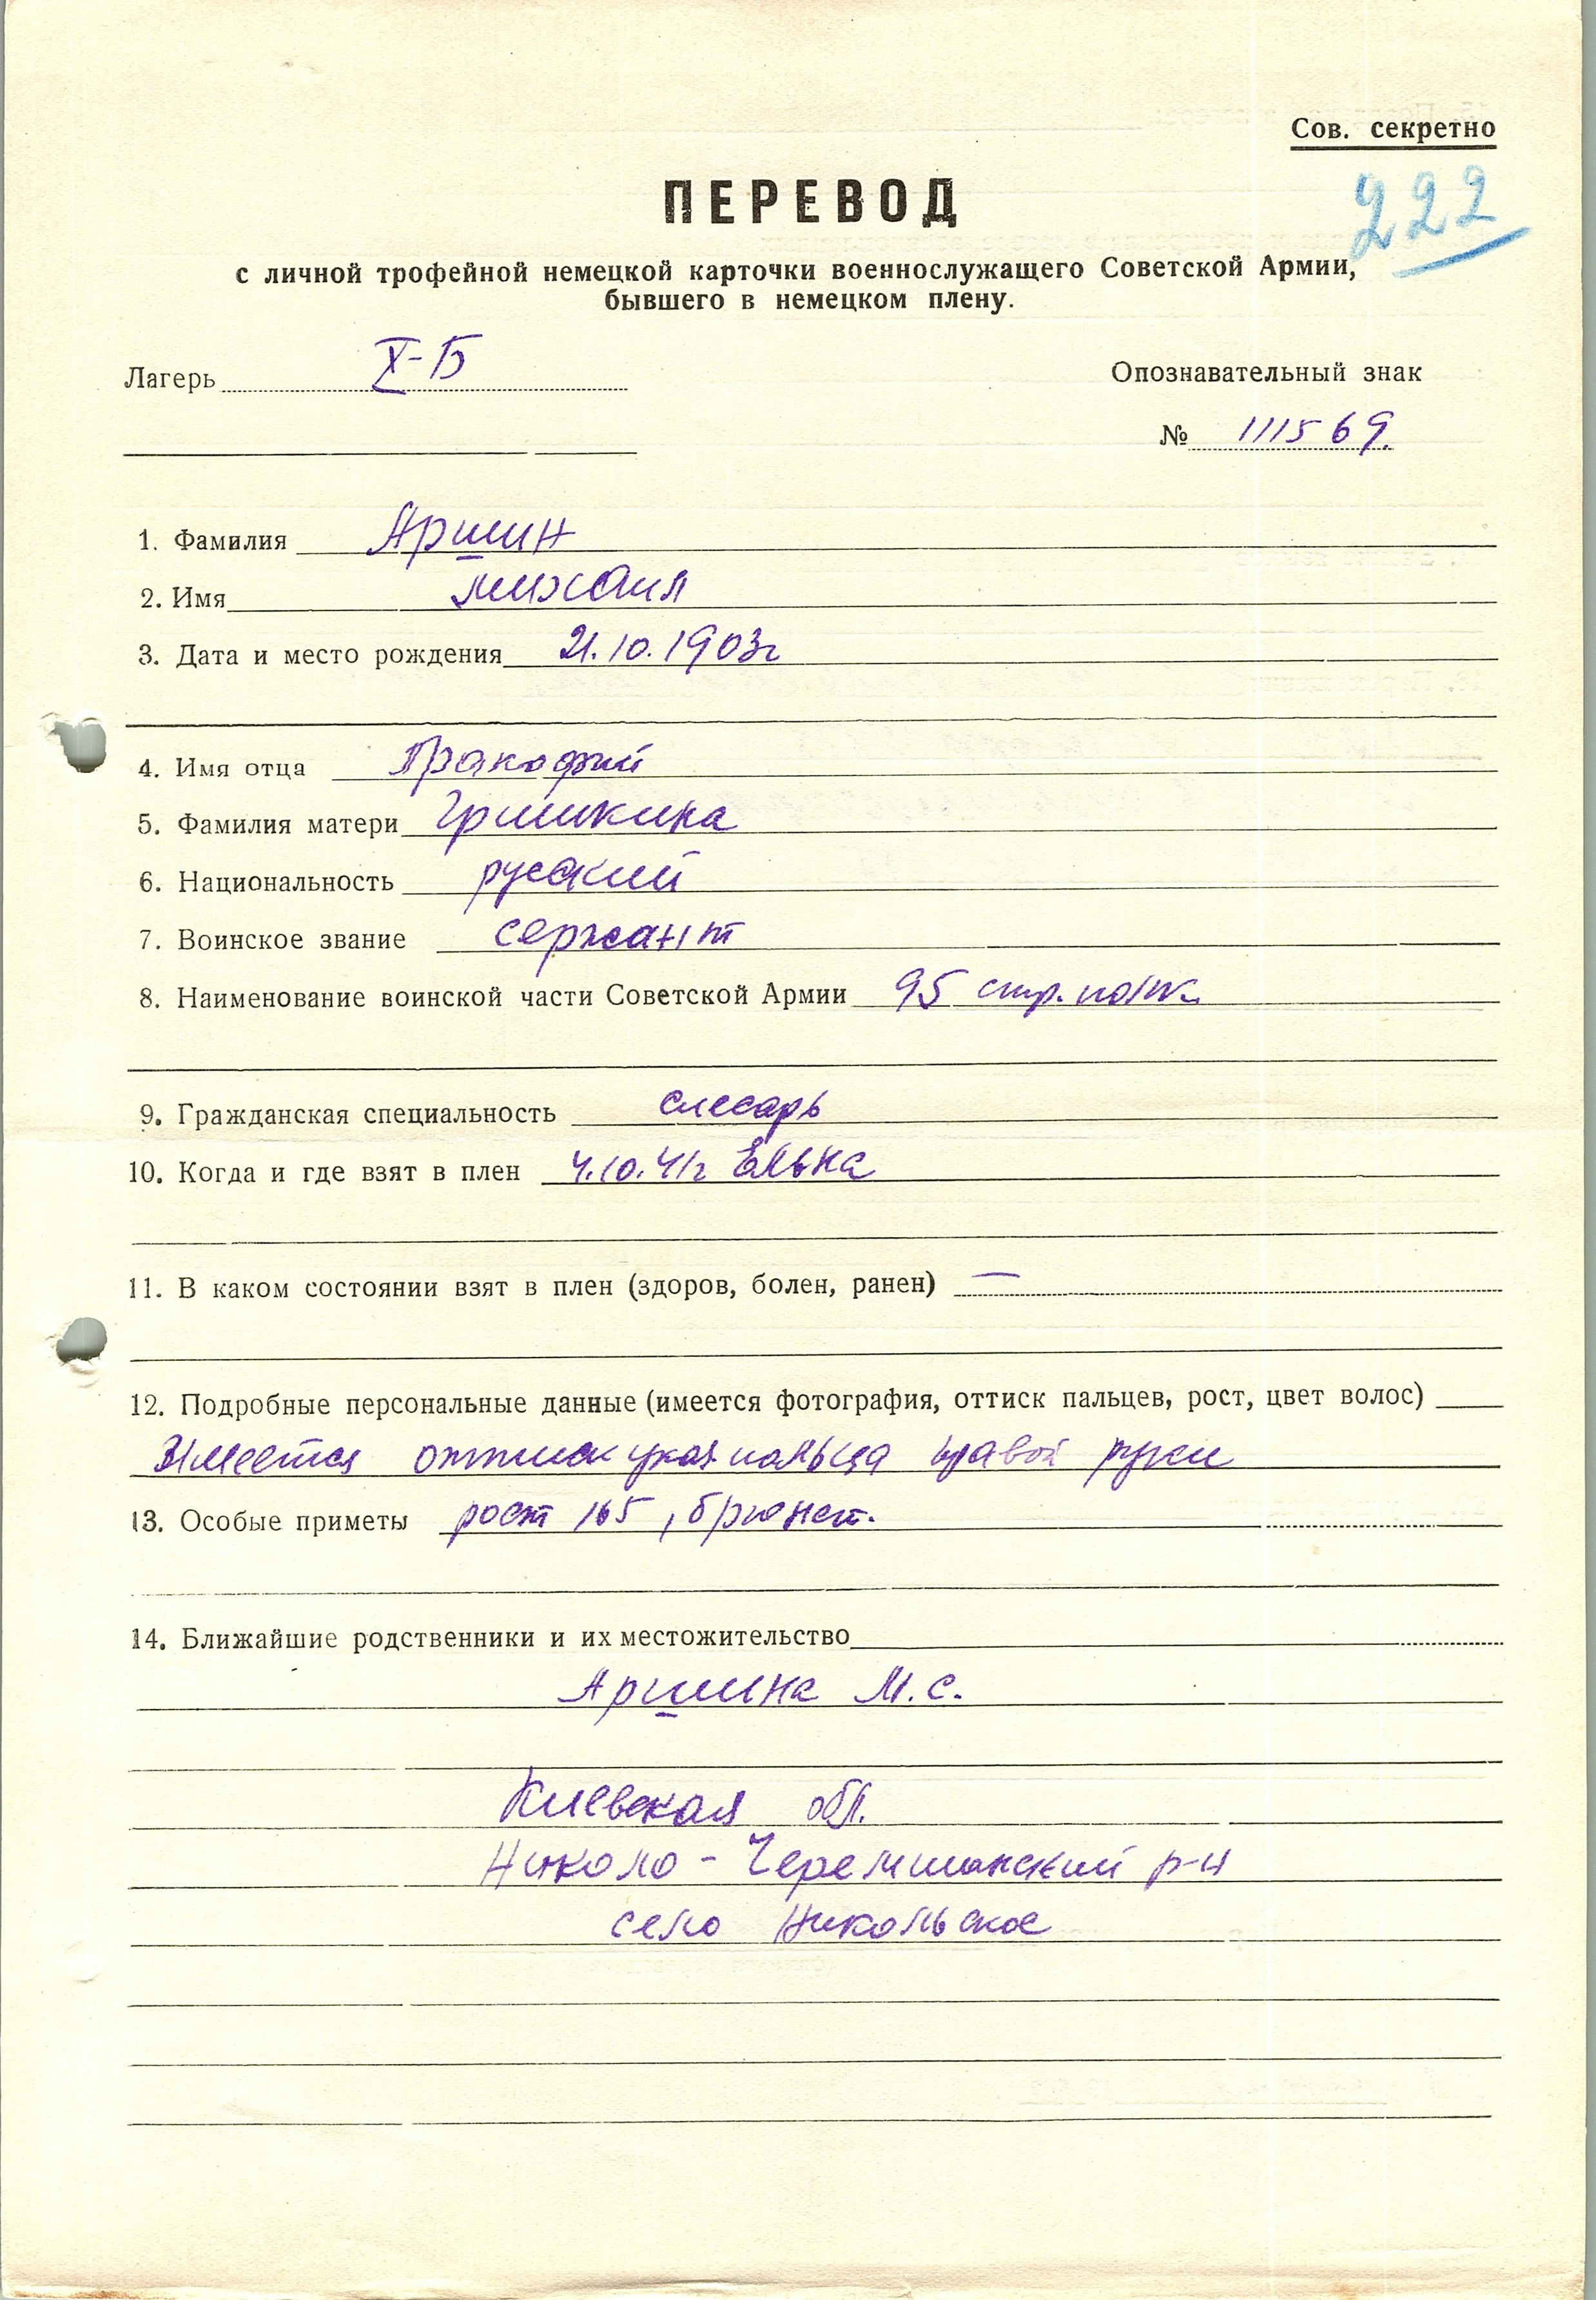 Сов. секретно
222
ПЕРЕВОД
с личной трофейной немецкой карточки военнослужащего Советской Армии,
бывшего в немецком плену.
Лагерь X-Б
Опознавательный знак
№ 111569.
1. Фамилия Аршин
2. Имя михаил
3. Дата и место рождения 21.10.1903г
4. Имя отца Пракофий
5. Фамилия матери Гришкина
6. Национальность русский
7. Воинское звание сержант
8. Наименование воинской части Советской Армии 95 стр. полк
9. Гражданская специальность слесарь
10. Когда и где взят в плен 4.10.41г Ельна
11. В каком состоянии взят в плен (здоров, болен, ранен) —
12. Подробные персональные данные (имеется фотография, оттиск пальцев, рост, цвет волос)
Имеется оттиск указ. пальца правой руки
13. Особые приметы рост 165, брюнет.
14. Ближайшие родственники и их местожительство
Аршина М.С.
Киевская обл.
Николо-Черемшанский р-н
село Никольское